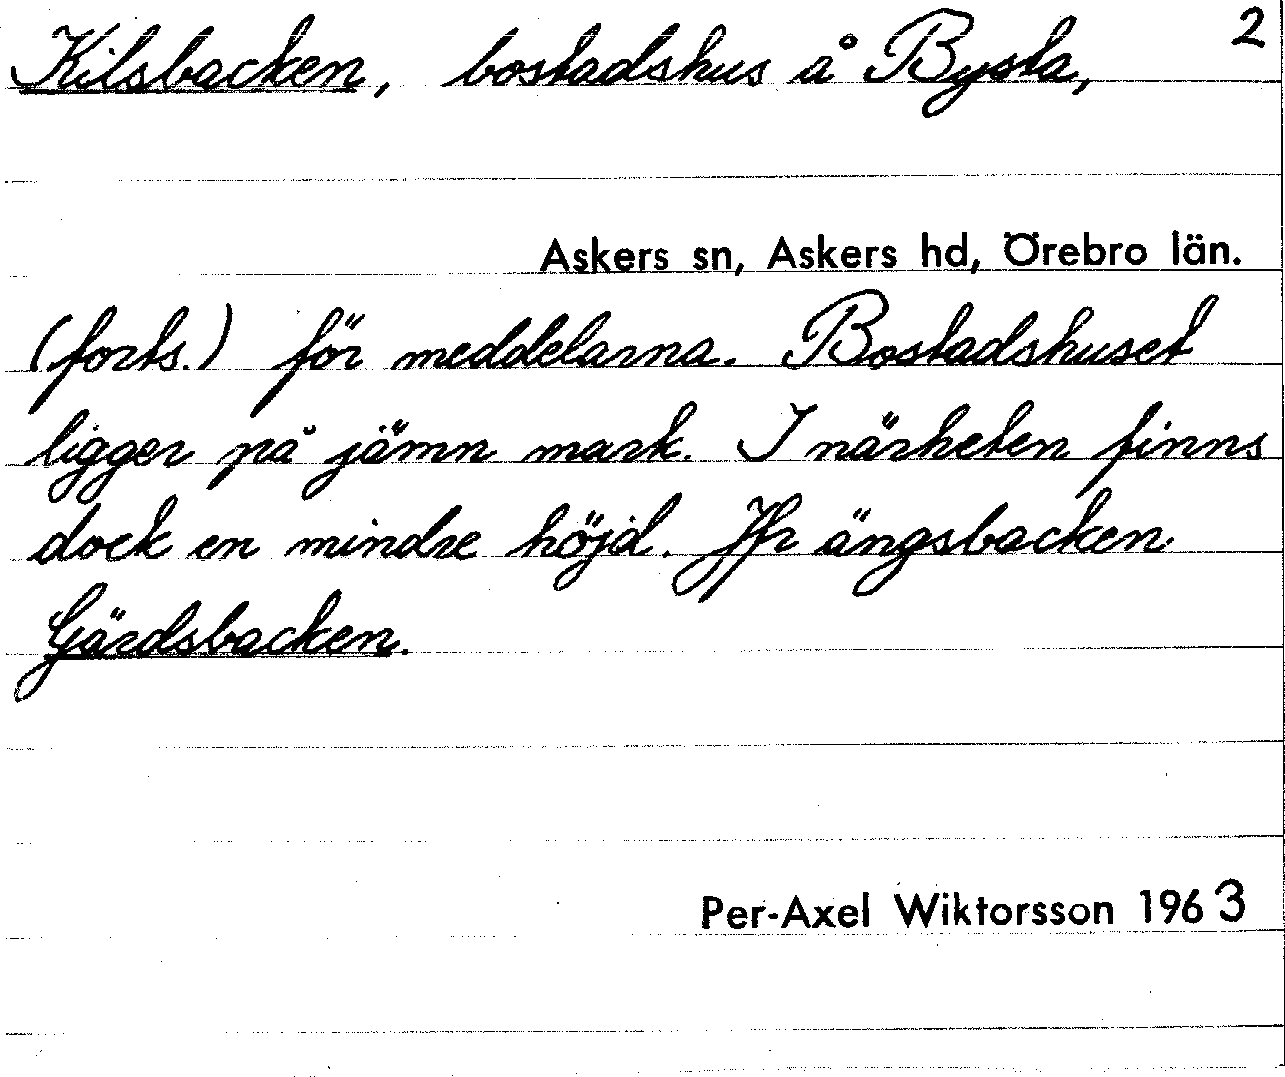 2
Kilsbacken, bostadshus å Bysta,
Askers sn, Askers hd, Örebro län.
(forts.) för meddelarna. Bostadshuset
ligger på jämn mark. I närheten finns
dock en mindre höjd. Jfr ängsbacken
Gärdsbacken.
Per-Axel Wiktorsson 1963